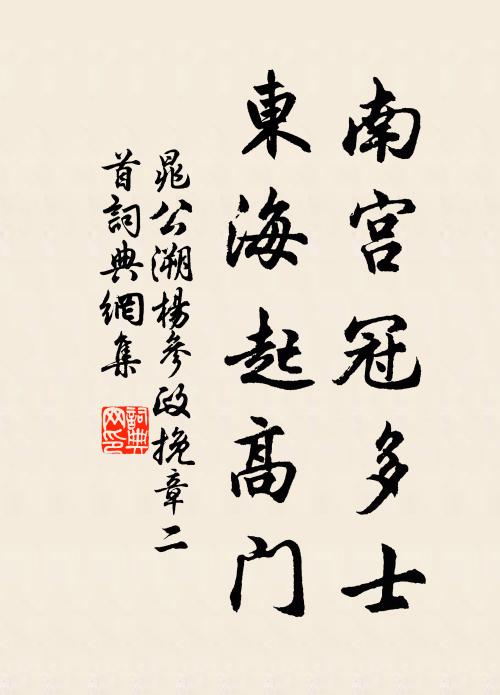 南宮冠多士
東海起高門
晁公溯楊參政挽章二
首詞典網集
詞典
网印